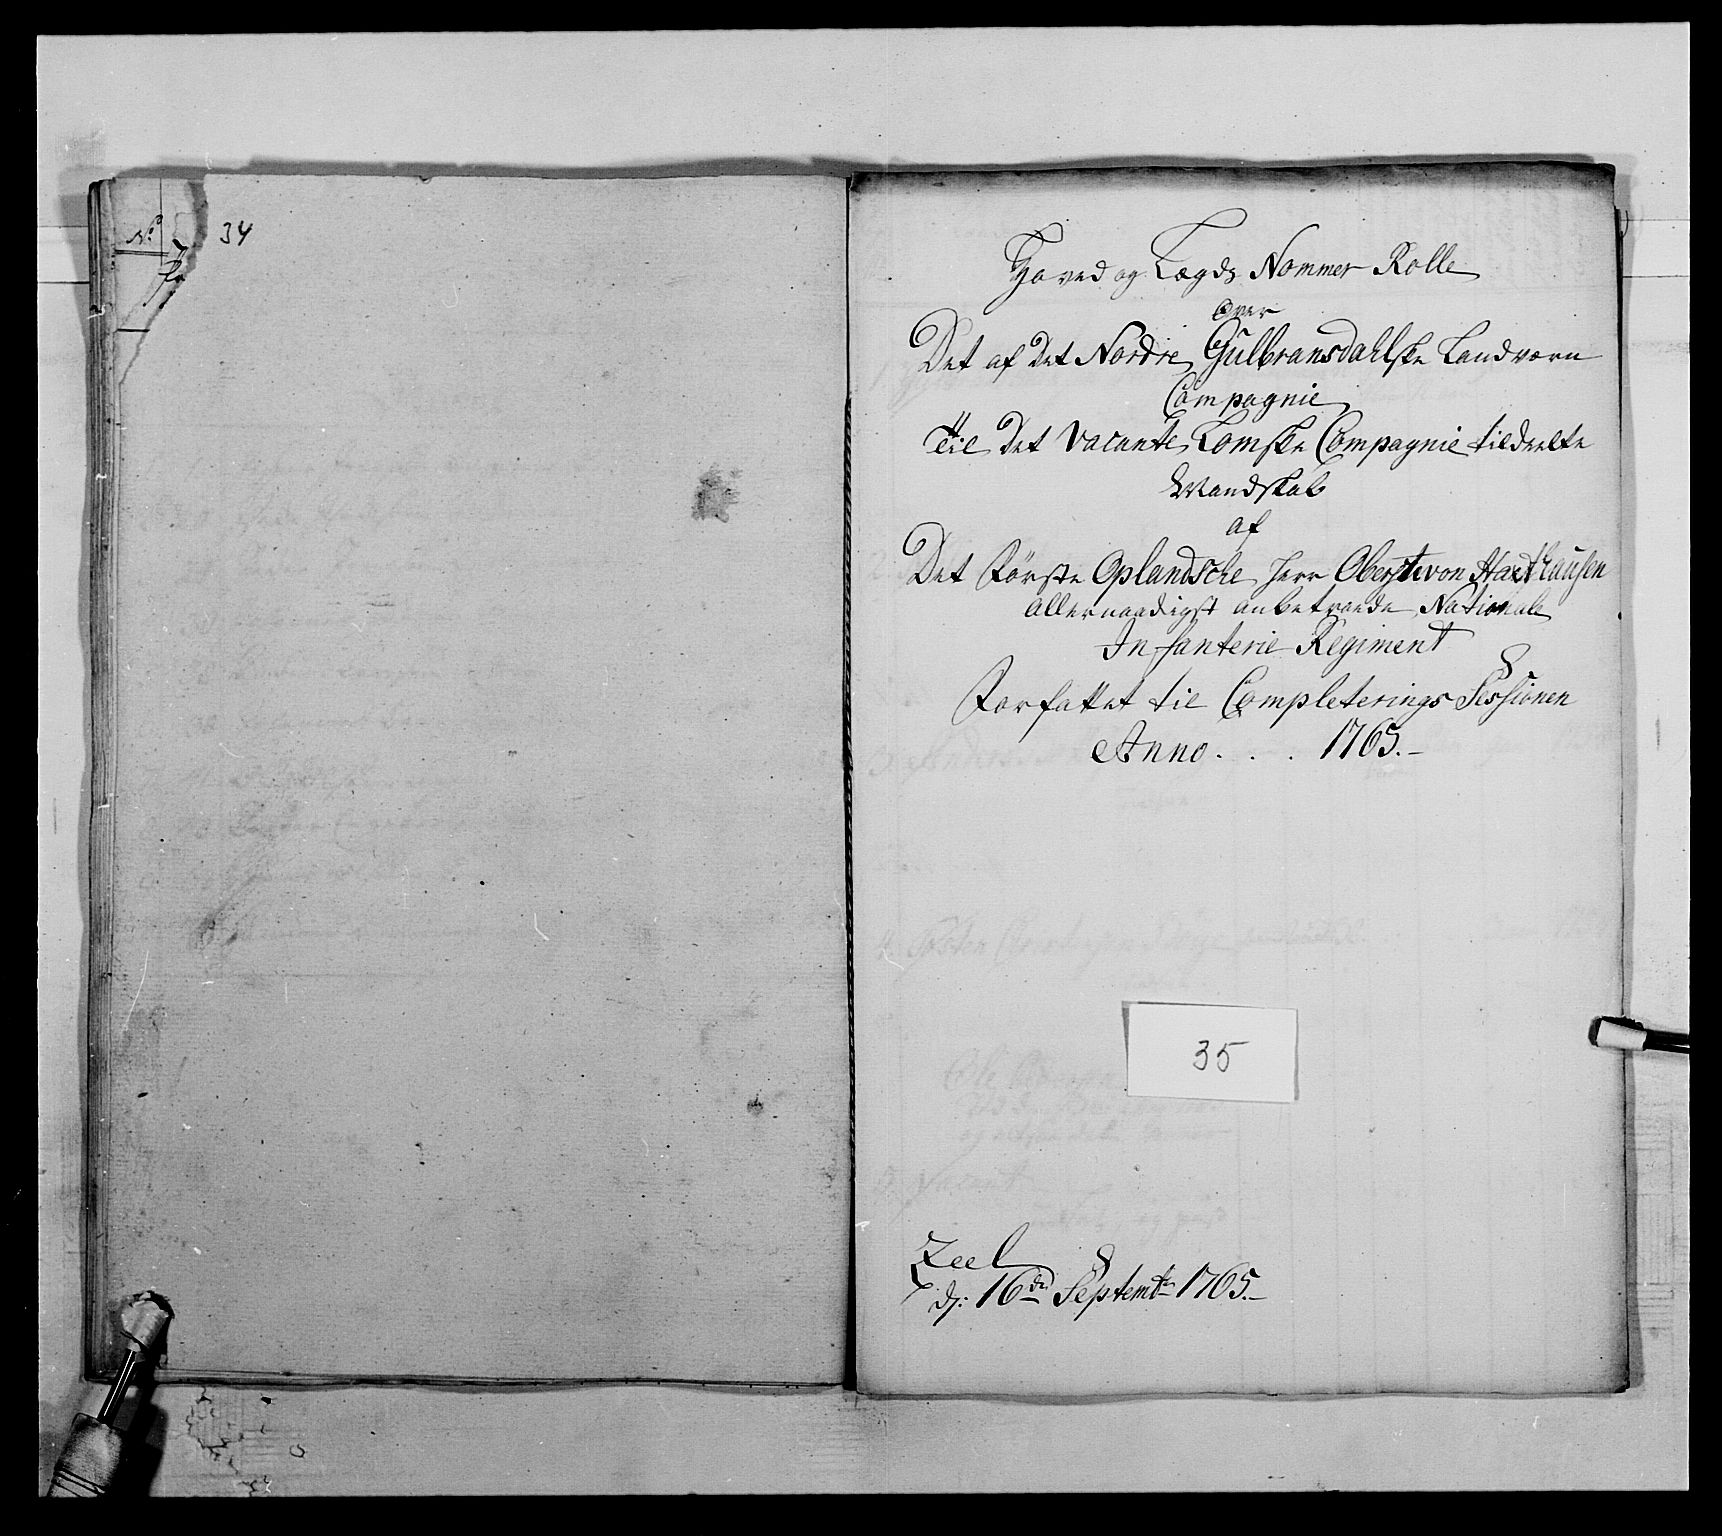 No. 34
Hoved og Lægds Nommer Rolle
Over
Det af Det Nordre Gulbransdahlske Landværn
Compagnie
Til Det Vacante Lomske Compagnie tildeelte
Mandskab
af
Det Første Oplandsche Herr Oberste von Haxthausen
allernaadigst anbetroede Nationale
Infanterie Regiment
Forfattet til Completerings Sessionen
Anno . . . 1765.-
35
Zeel
d: 16de Septembr 1765.-